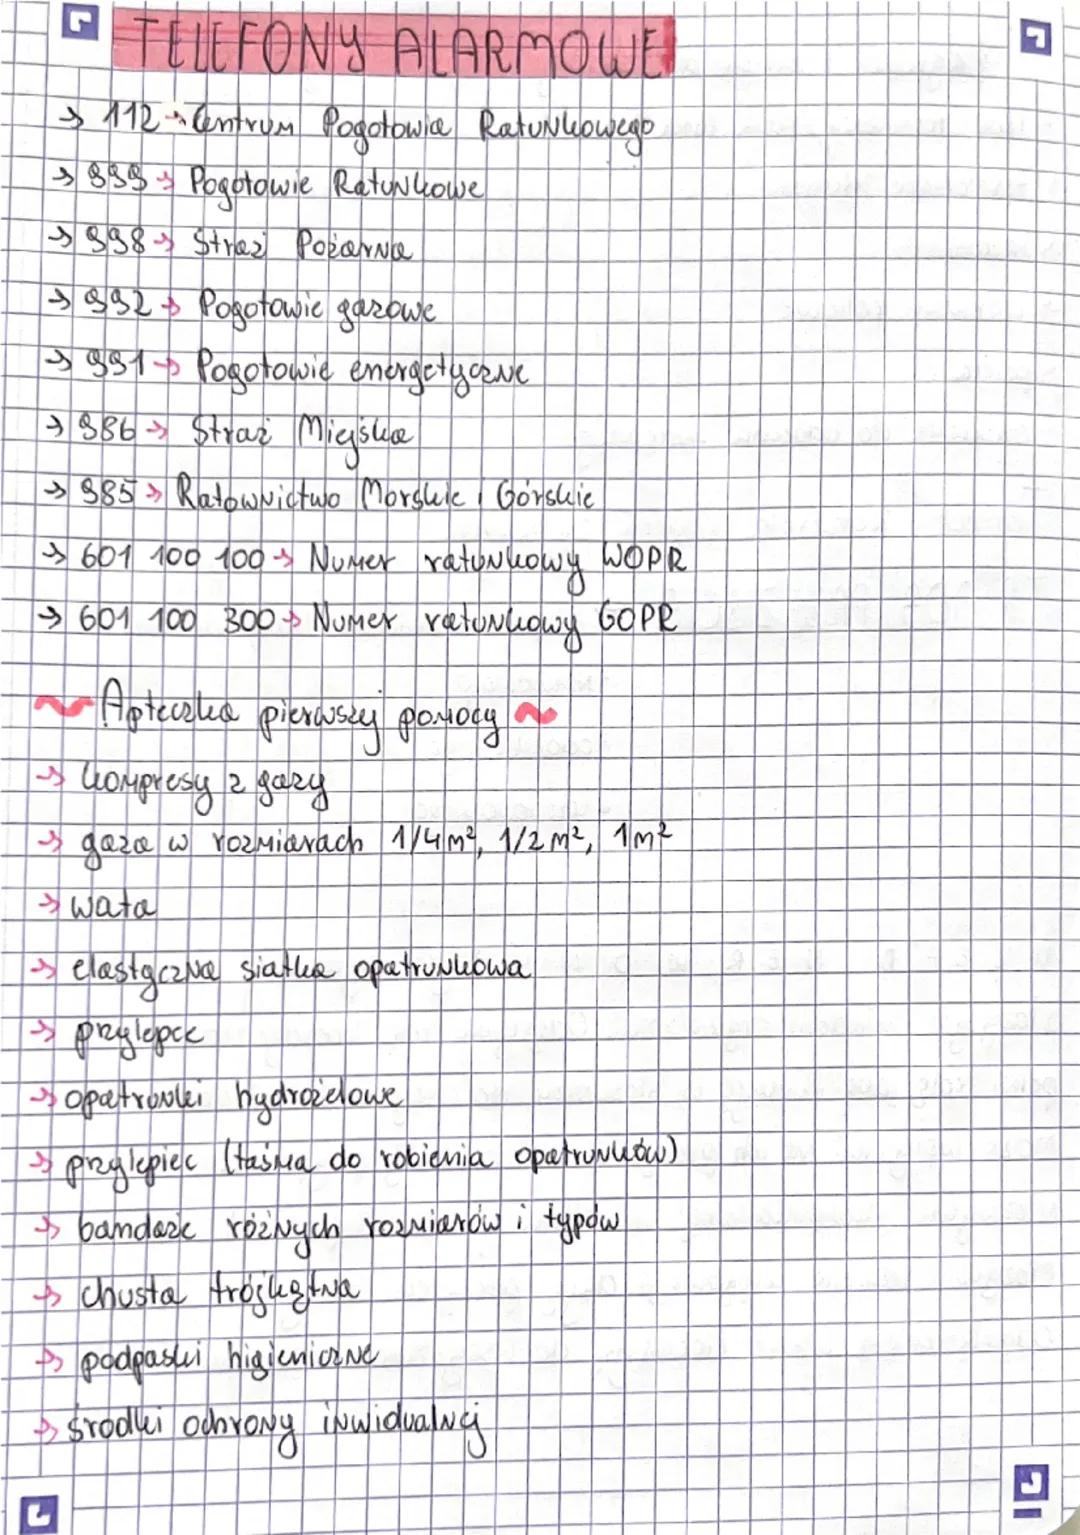 TELEFONY ALARMOWE
→ 112 → Centrum Pogotowia Ratunkowego
→ 999 → Pogotowie Ratunkowe
→ 998 → Straż Pożarna
→ 992 → Pogotowie gazowe
→ 991 → Pogotowie energetyczne
→ 986 → Straż Miejska
→ 985 → Ratownictwo Morskie i Górskie
→ 601 100 100 → Numer ratunkowy WOPR
→ 601 100 300 → Numer ratunkowy GOPR
~ Apteczka pierwszej pomocy ~
→ kompresy z gazy
→ gaza w rozmiarach 1/4 m², 1/2 m², 1m²
→ wata
→ elastyczna siatka opatrunkowa
→ przylepce
→ opatrunki hydrożelowe
→ przylepiec (taśma do robienia opatrunków)
→ bandaże różnych rozmiarów i typów
→ chusta trójkątna
→ podpaski higieniczne
→ środki ochrony inwidualnej